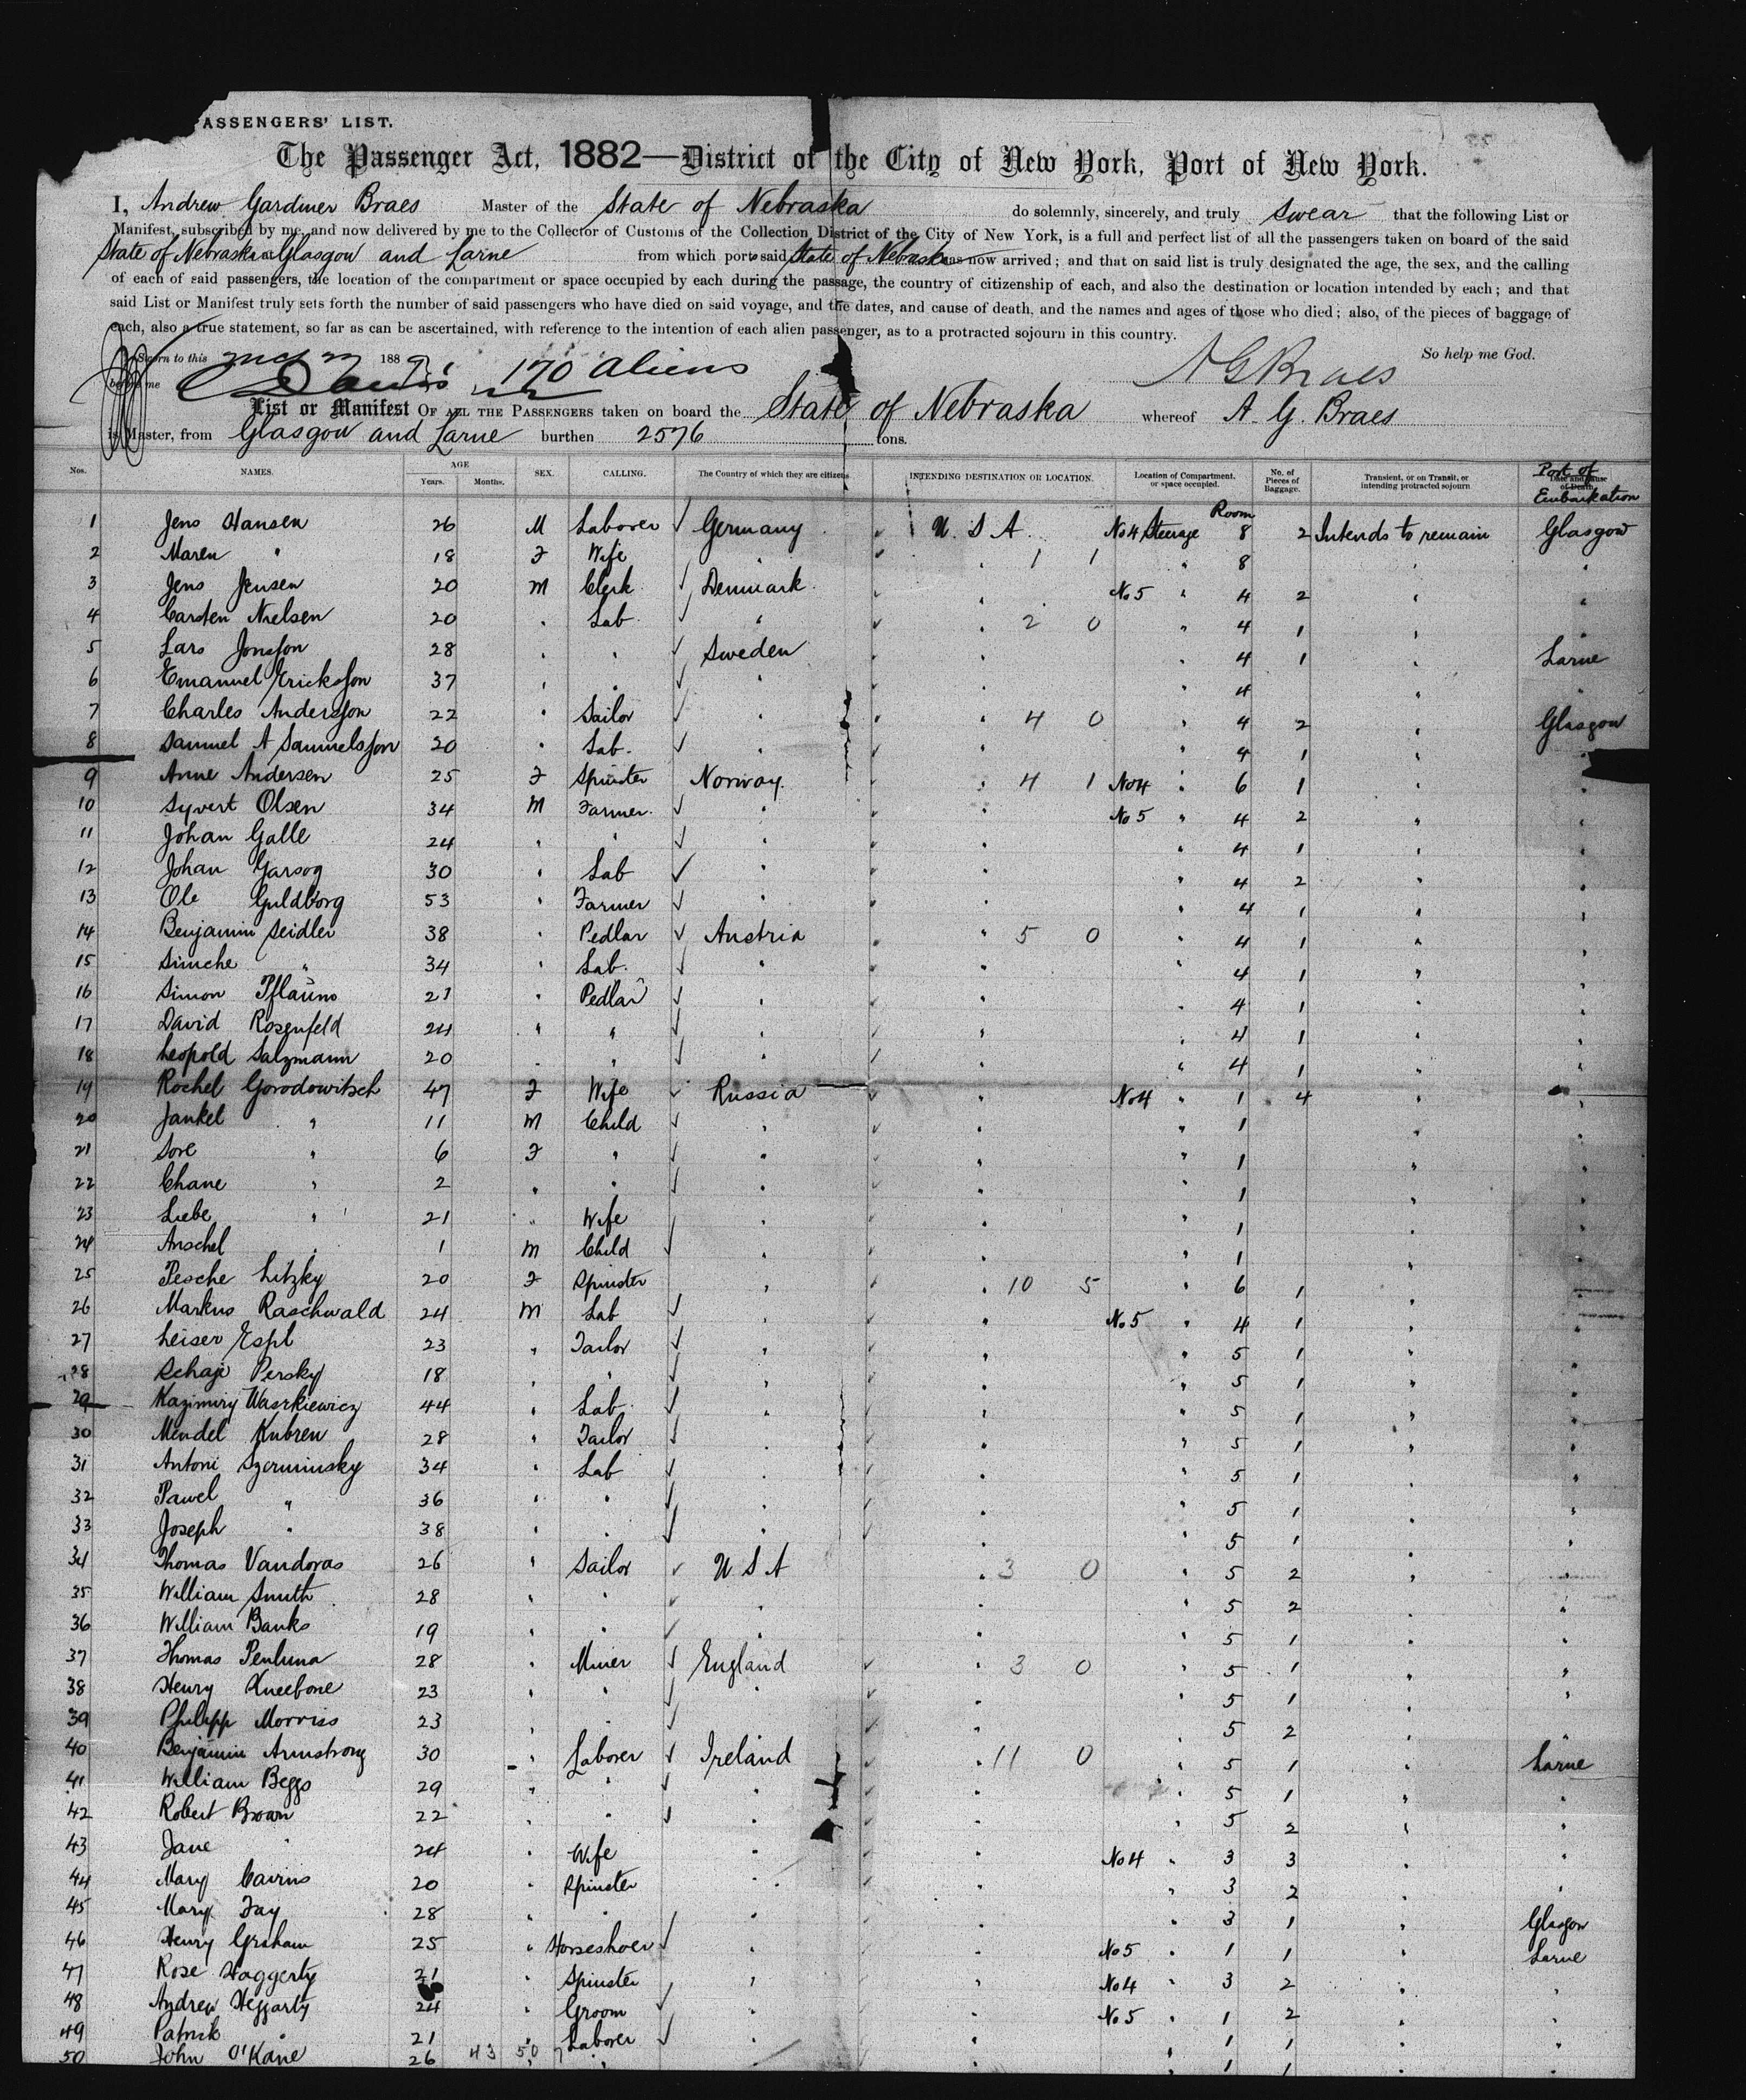 PASSENGERS' LIST.
The Passenger Act, 1882—District of the City of New York, Port of New York.
I, Andrew Gardiner Braes Master of the State of Nebraska do solemnly, sincerely, and truly swear that the following List or
Manifest, subscribed by me, and now delivered by me to the Collector of Customs of the Collection District of the City of New York, is a full and perfect list of all the passengers taken on board of the said
State of Nebraska at Glasgow and Larne from which port said State of Nebraska has now arrived; and that on said list is truly designated the age, the sex, and the calling
of each of said passengers, the location of the compartment or space occupied by each during the passage, the country of citizenship of each, and also the destination or location intended by each; and that
said List or Manifest truly sets forth the number of said passengers who have died on said voyage, and the dates, and cause of death, and the names and ages of those who died; also, of the pieces of baggage of
each, also a true statement, so far as can be ascertained, with reference to the intention of each alien passenger, as to a protracted sojourn in this country.
Sworn to this 188 So help me God.
before me 170 Aliens A G Braes
List or Manifest OF ALL THE PASSENGERS taken on board the State of Nebraska whereof A. G. Braes
is Master, from Glasgow and Larne burthen 2576 tons.
Nos. NAMES. AGE Years. Months. SEX. CALLING. The Country of which they are citizens INTENDING DESTINATION OR LOCATION. Location of Compartment, or space occupied. No. of Pieces of Baggage. Transient, or on Transit, or intending protracted sojourn Date and Cause of Death Port of Embarkation
1 Jens Hansen 26 M Laborer ✓ Germany U.S.A. No 4 Steerage Room 8 2 Intends to remain Glasgow
2 Maren " 18 F Wife " " 1 1 " 8 " "
3 Jens Jensen 20 M Clerk ✓ Denmark " No 5 " 4 2 " "
4 Carsten Nielsen 20 " Lab ✓ " " 2 0 " 4 1 " "
5 Lars Jonsson 28 " " ✓ Sweden " " 4 1 " Larne
6 Emanuel Ericksson 37 " " ✓ " " " 4 " "
7 Charles Andersson 22 " Sailor ✓ " " 4 0 " 4 2 " Glasgow
8 Samuel A Samuelsson 20 " Lab. ✓ " " " 4 1 " "
9 Anne Andersen 25 F Spinster Norway. " 4 1 No 4 " 6 1 " "
10 Syvert Olsen 34 M Farmer. ✓ " " No 5 " 4 2 " "
11 Johan Galle 24 " " ✓ " " " 4 1 " "
12 Johan Garsog 30 " Lab ✓ " " " 4 2 " "
13 Ole Guldborg 53 " Farmer ✓ " " " 4 1 " "
14 Benjamin Seidler 38 " Pedlar ✓ Austria " 5 0 " 4 1 " "
15 Simche " 34 " Lab. ✓ " " " 4 1 " "
16 Simon Pflaum 21 " Pedlar ✓ " " " 4 1 " "
17 David Rosenfeld 24 " " ✓ " " " 4 1 " "
18 Leopold Salzmann 20 " " ✓ " " " 4 1 " "
19 Rochel Gorodowitsch 47 F Wife ✓ Russia " No 4 " 1 4 " "
20 Jankel " 11 M Child ✓ " " " 1 " "
21 Sore " 6 F " ✓ " " " 1 " "
22 Chane " 2 " " ✓ " " " 1 " "
23 Liebe " 21 " Wife " " " 1 " "
24 Anschel " 1 M Child ✓ " " " 1 " "
25 Pesche Litzky 20 F Spinster " " 10 5 " 6 1 " "
26 Markus Raschwald 24 M Lab ✓ " " No 5 " 4 1 " "
27 Leiser Espl 23 " Tailor ✓ " " " 5 1 " "
28 Schaje Persky 18 " " ✓ " " " 5 1 " "
29 Kazimiry Waszkiewicz 44 " Lab. ✓ " " " 5 1 " "
30 Mendel Kubren 28 " Tailor ✓ " " " 5 1 " "
31 Antoni Szerminsky 34 " Lab ✓ " " " 5 1 " "
32 Pawel " 36 " " ✓ " " " 5 1 " "
33 Joseph " 38 " " ✓ " " " 5 1 " "
34 Thomas Vandoras 26 " Sailor ✓ U S A " 3 0 " 5 2 " "
35 William Smith 28 " " ✓ " " " 5 2 " "
36 William Banks 19 " " ✓ " " " 5 1 " "
37 Thomas Penluna 28 " Miner ✓ England " 3 0 " 5 1 " "
38 Henry Kneebone 23 " " ✓ " " " 5 1 " "
39 Philipp Morriss 23 " " ✓ " " 5 2 " "
40 Benjamin Armstrong 30 " Laborer ✓ Ireland " 11 0 " 5 1 " Larne
41 William Beggs 29 " " ✓ " " " 5 1 " "
42 Robert Brown 22 " " ✓ " " " 5 2 " "
43 Jane " 24 " Wife " " No 4 " 3 3 " "
44 Mary Cairns 20 " Spinster " " " 3 2 " "
45 Mary Fay 28 " " " " " 3 1 " Glasgow
46 Henry Graham 25 " Horseshoer ✓ " " No 5 " 1 1 " Larne
47 Rose Haggerty 21 " Spinster " " No 4 " 3 2 " "
48 Andrew Heggarty 24 " Groom ✓ " " No 5 " 1 2 " "
49 Patrick " 21 " Laborer ✓ " " " 1 1 " "
50 John O'Kane 26 43 50 " " " " 1 1 " "